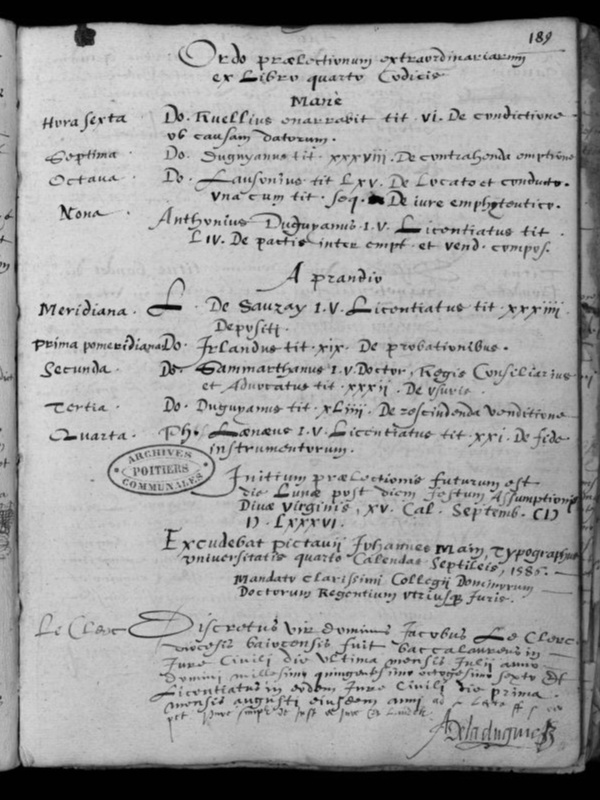 189
Ordo prælectionum extraordinariarum
ex Libro quarto Codicis
Manè
Hora sexta Do. Ruellius enarrabit tit. vi. De condictione
ob causam datorum.
Septima Do. Duguyanus tit. xxxviii. De contrahenda emptione
Octava Do. Lausonius tit Lxv. De Locato et conducto.
una cum tit. seq. De iure emphyteutico.
Nona Anthonius Duguyanus I.V. Licentiatus tit.
LIV. De pactis inter empt. et vend. compos.
A prandio
Meridiana. L. De Sauzay I.V. Licentiatus tit. xxxiiii.
Depositi.
Prima pomeridiana Do. Irlandus tit. xix. De probationibus.
Secunda. Do. Sammarthanus I.V. Doctor, Regis Consiliarius
et Advocatus tit. xxxii. De usuris.
Tertia. Do. Duguyanus tit. xLiiii. De rescindenda venditione
Quarta. Ph. Lænæus I.V. Licentiatus tit. xxi. De fide
instrumentorum.
ARCHIVES
POITIERS
COMMUNALES
Initium prælectionis futurum est
die Lunæ post diem festum Assumptionis
Divæ Virginis, xv. Cal. Septemb. CIↃ
IↃ. LXXXVI.
Excudebat Pictavii Johannes Main, Typographus
universitatis quarto Calendas Septileis, 1585.
Mandato Clarissimi Collegii Dominorum
Doctorum Regentium utriusq Juris.
Le Clerc Discretus vir dominus Jacobus Le Clerc
diocesis baiocensis fuit baccalaureus in
Jure Civili die ultima mensis Julii anno
domini millesimo quingentesimo octogesimo sexto Et
Licentiatus in eodem Jure Civili die prima
mensis augusti eiusdem anni
Adeladuguie